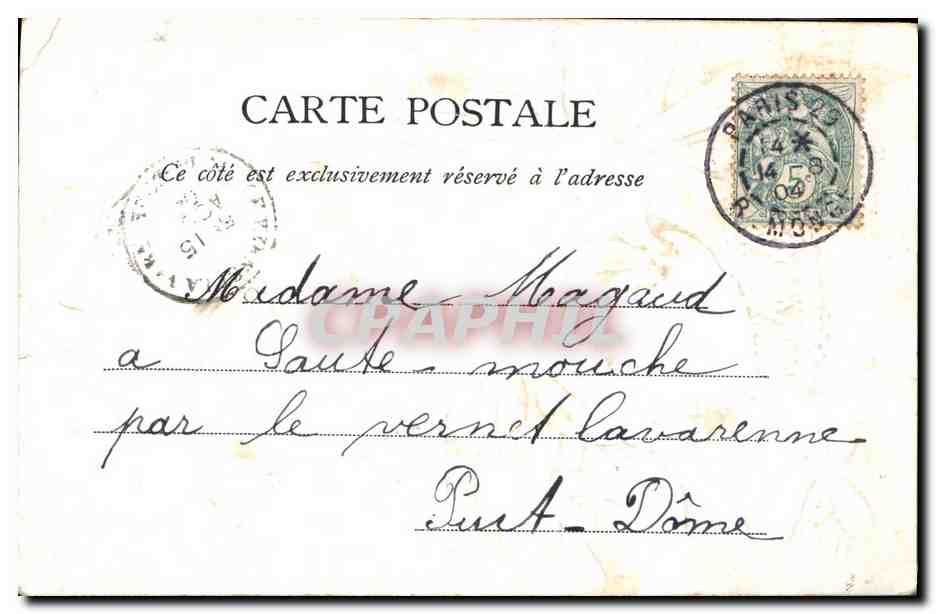 CARTE POSTALE
Ce côté est exclusivement réservé à l'adresse
PARIS 29
14 *
14 - 8
04
R. MONGE
5
15
Madame Magaud
CPAPHIL
a Saute-mouche
par le vernet lavarenne
Puit-Dôme